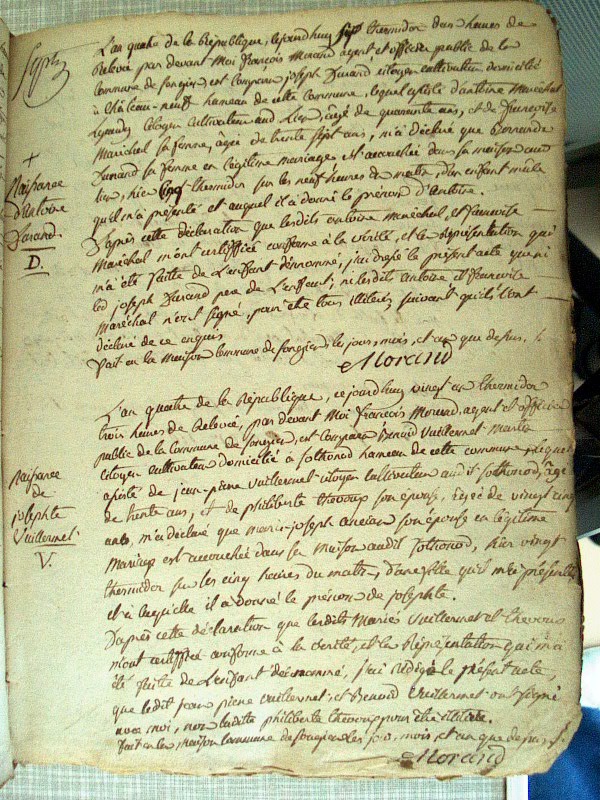 L'an quatre de la République, cejourdhuy sept thermidor deux heures de
Relevé par devant Moi françois Morand agent et officier public de la
Commune de songieu, est Comparu joseph Durand citoyen cultivateur domicilié
à Château-neuf hameau de cette commune, lequel assisté d'antoine Maréchal
citoyen Cultivateur aud Lieu, âgé de quarante ans, et de
Maréchal sa femme, agée de trente sept ans, m'a déclaré que
Durand sa femme en légitime mariage est accouchée dans sa maison aud
lieu, hier cinq thermidor sur les neuf heures du matin, d'un enfant mâle
qu'il m'a présenté et auquel il a donné le prénom d'antoine.
D'après cette déclaration que lesdits antoine Maréchal, et
Maréchal m'ont certiffiée conforme à la vérité, et la Représentation qui
m'a été faite de L'enfant dénommé, j'ai dressé le présent acte que ni
led joseph Durand pere de L'enfant; ni lesdits antoine et
Maréchal n'ont signé, pour être tous illitérés, suivant qu'ils l'ont
déclaré de ce enquis
fait en la Maison Commune de songieu, les jour, mois, et an que dessus.
Morand
+
Naissance
d'antoine
Durand
D.
L'an quatre de la République, cejourdhuy vingt un thermidor
trois heures de Relevée, par devant Moi françois Morand, agent et officier
public de la Commune de songieu, est Comparu Benoid Vuillermet
citoyen cultivateur domicilié à sothonod hameau de cette commune, lequel
assisté de jean-pierre vuillermet citoyen cultivateur audit sothonod, âgé
de trente ans, et de philiberte thevoup son épouse, agée de vingt cinq
ans, m'a déclaré que marie-joseph ancian son épouse en légitime
Mariage est accouchée dans sa maison audit Sothonod, hier vingt
thermidor sur les cinq heures du matin, d'une fille qu'il m'a présentée
et à laquelle il a donné le prénom de josephte.
D'après cette déclaration que lesdits Mariés Vuillermet et thevoup
m'ont certiffiée conforme à la vérité, et la Représentation qui m'a
été faite de L'enfant dénommé, j'ai Rédigé le présent acte,
que ledit jean pierre vuillermet, et Benoid Vuillermet ont signé
avec moi, non ladite philiberte thevoup pour être illitérée.
fait en la Maison Commune de songieu les jour, mois, et an que dessus.
Morand
Naissance
de
josephte
Vuillermet
V.